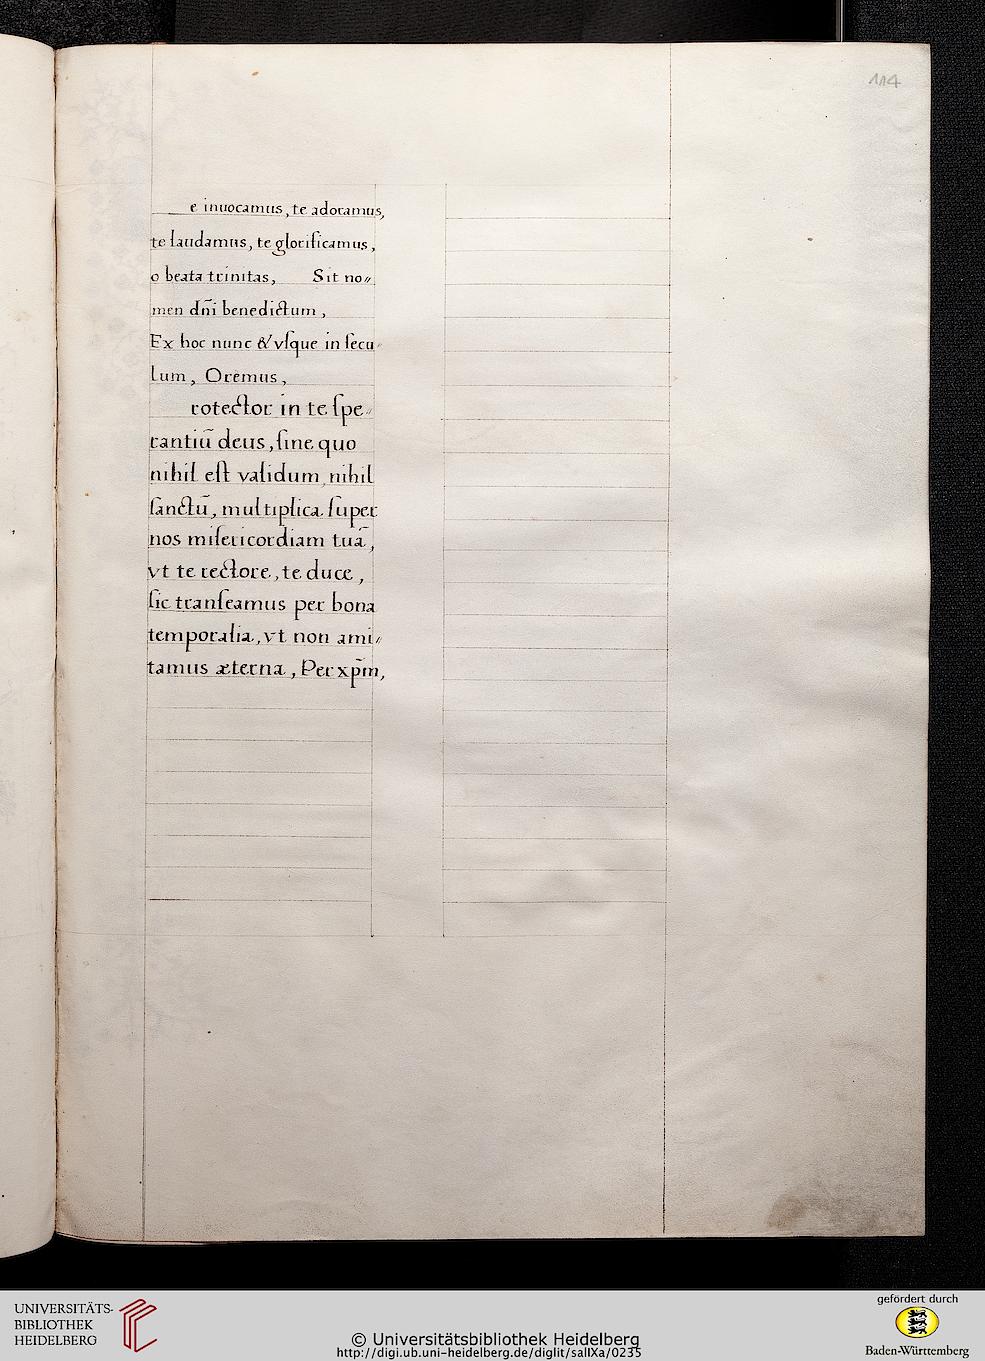 114
e inuocamus, te adoramus,
te laudamus, te glorificamus,
o beata trinitas, Sit no〃
men dn̄i benedictum,
Ex hoc nunc & vſque in ſecu〃
lum, Oremus,
rotector in te ſpe〃
rantiū deus, ſine quo
nihil eſt validum, nihil
ſanctū, multiplica ſuper
nos miſericordiam tuā,
vt te rectore, te duce,
ſic tranſeamus per bona
temporalia, vt non ami〃
tamus æterna, Per xp̄m,
UNIVERSITÄTS-
BIBLIOTHEK
HEIDELBERG
© Universitätsbibliothek Heidelberg
http://digi.ub.uni-heidelberg.de/diglit/salIXa/0235
gefördert durch
Baden-Württemberg